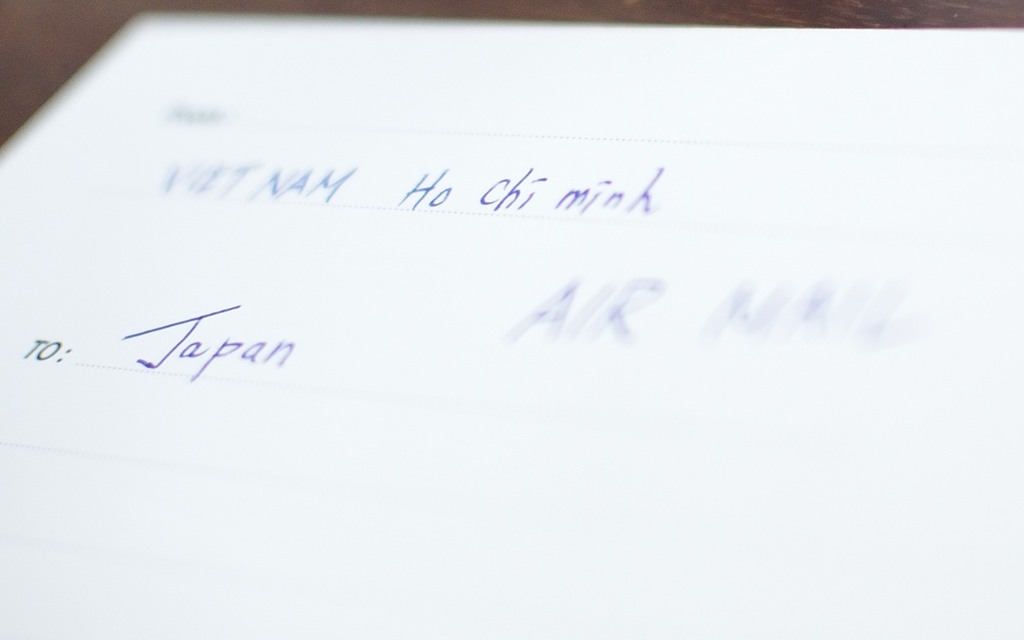 VIETNAM Ho Chi minh
AIR MAIL
TO: Japan